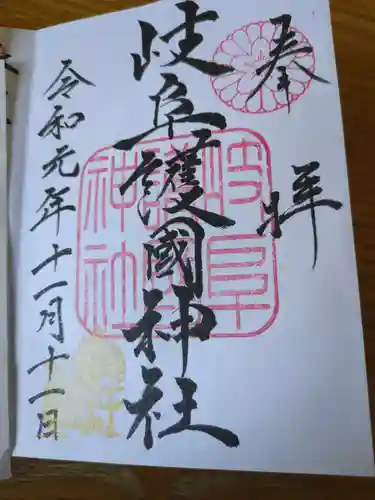 奉拝
岐阜護國神社
岐阜護国神社
令和元年十一月十一日